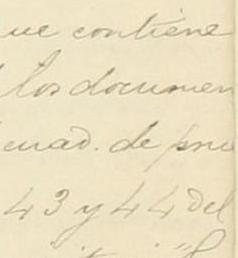 ue contiene
los documen
cuad. de prue
43 y 44 del